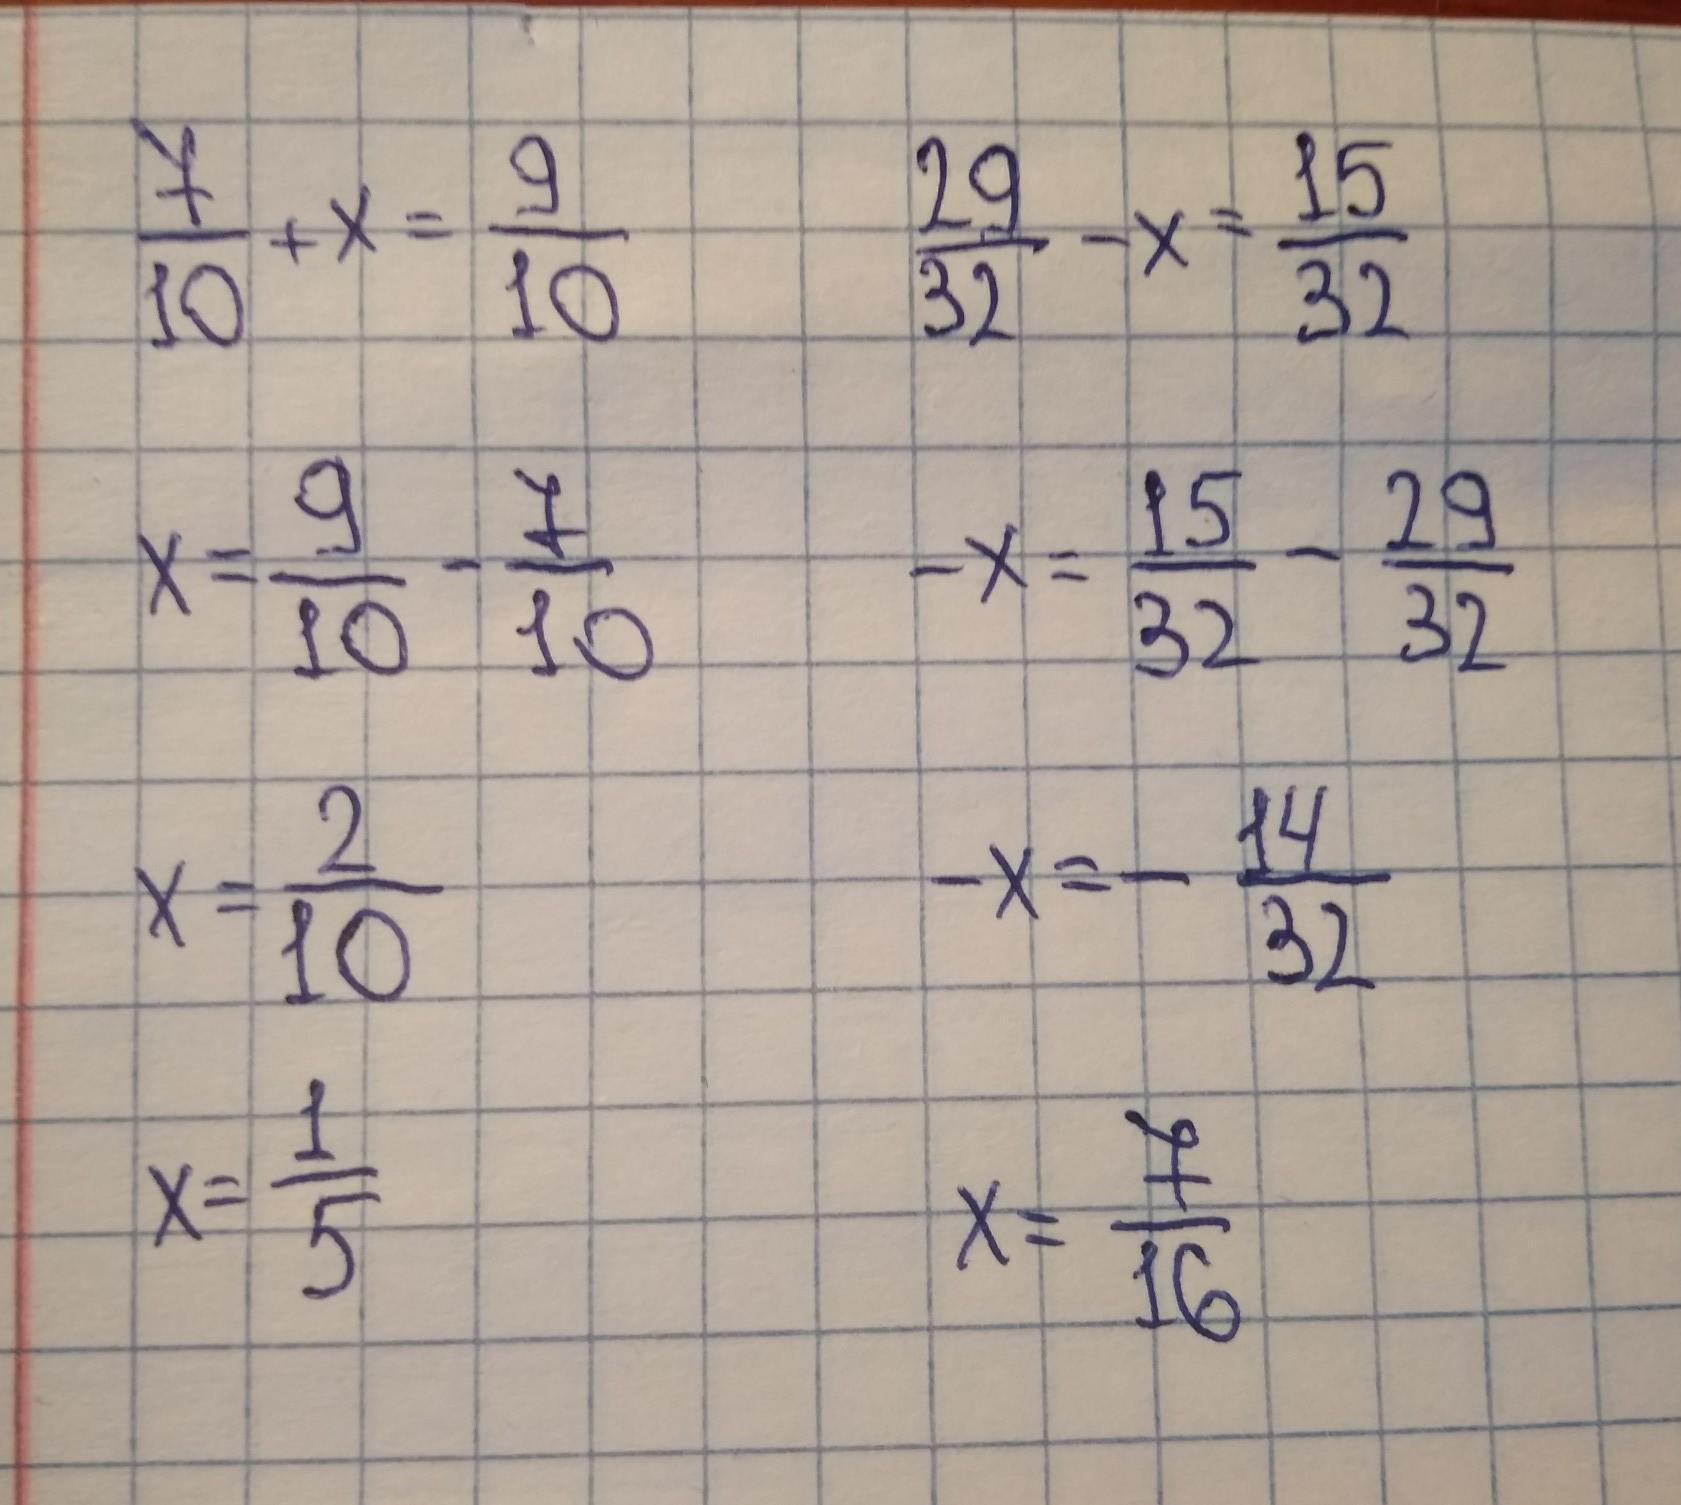 7/10 + x = 9/10
x = 9/10 - 7/10
x = 2/10
x = 1/5
29/32 - x = 15/32
-x = 15/32 - 29/32
-x = - 14/32
x = 7/16